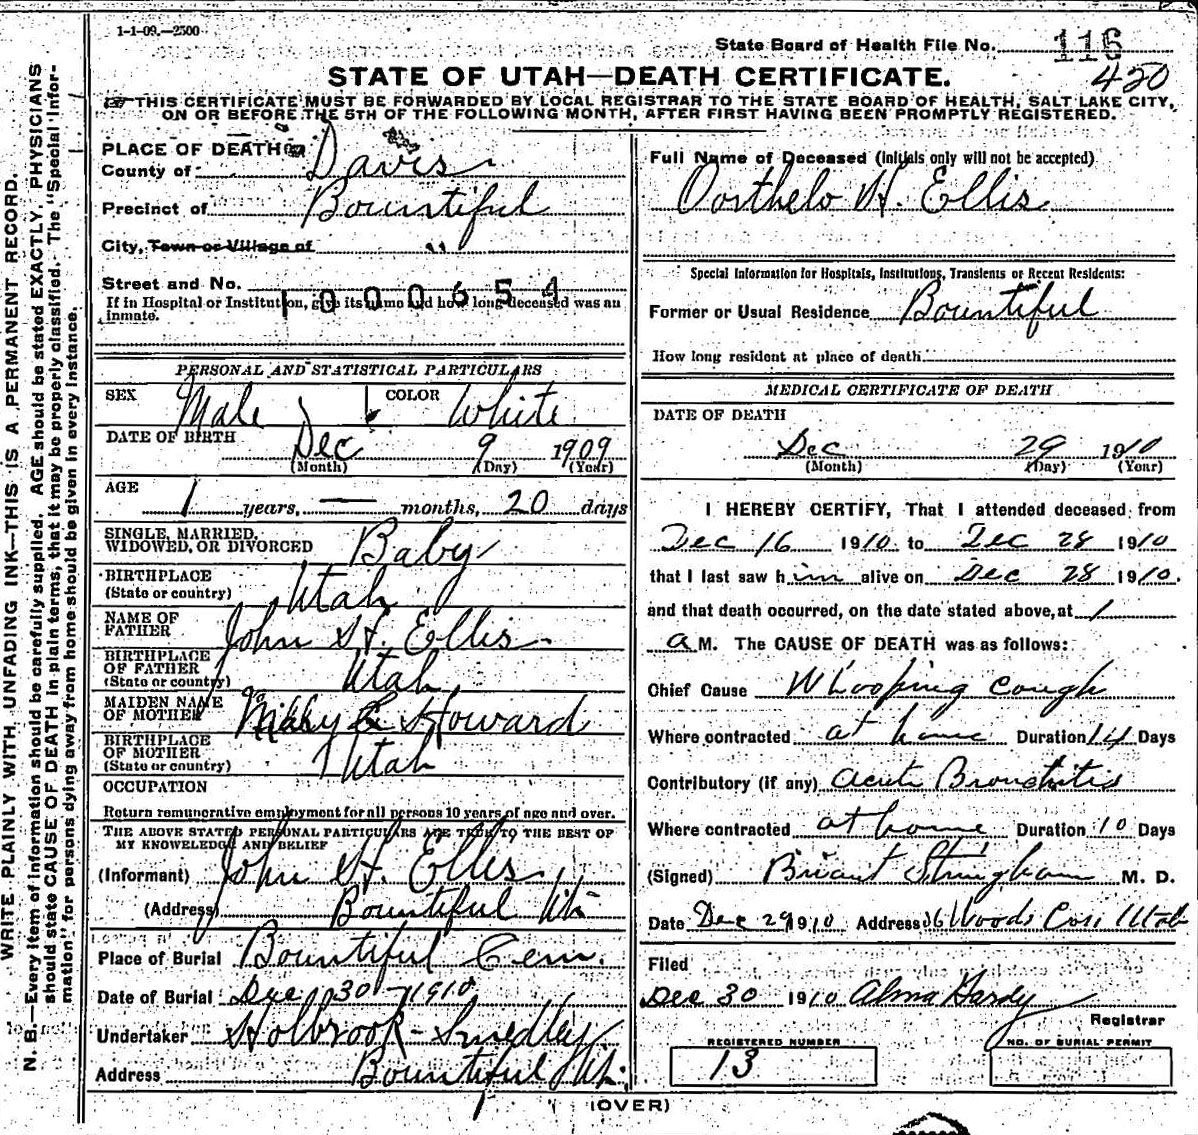 1-1-09.—2500
State Board of Health File No. 116
450
STATE OF UTAH—DEATH CERTIFICATE.
THIS CERTIFICATE MUST BE FORWARDED BY LOCAL REGISTRAR TO THE STATE BOARD OF HEALTH, SALT LAKE CITY,
ON OR BEFORE THE 5TH OF THE FOLLOWING MONTH, AFTER FIRST HAVING BEEN PROMPTLY REGISTERED.
WRITE PLAINLY WITH UNFADING INK—THIS IS A PERMANENT RECORD.
N. B.—Every item of information should be carefully supplied. AGE should be stated EXACTLY, PHYSICIANS
should state CAUSE OF DEATH in plain terms, that it may be properly classified. The "Special Infor-
mation" for persons dying away from home should be given in every instance.
PLACE OF DEATH
County of Davis
Precinct of Bountiful
City, Town or Village of "
Street and No.
1000654
If in Hospital or Institution, give its name and how long deceased was an
inmate.
PERSONAL AND STATISTICAL PARTICULARS
SEX Male COLOR White
DATE OF BIRTH Dec 9 1909
(Month) (Day) (Year)
AGE
1 years, — months, 20 days
SINGLE, MARRIED,
WIDOWED, OR DIVORCED Baby
BIRTHPLACE
(State or country) Utah
NAME OF
FATHER John H. Ellis
BIRTHPLACE
OF FATHER
(State or country) Utah
MAIDEN NAME
OF MOTHER Mary E Howard
BIRTHPLACE
OF MOTHER
(State or country) Utah
OCCUPATION
Return remunerative employment for all persons 10 years of age and over.
THE ABOVE STATED PERSONAL PARTICULARS ARE TRUE TO THE BEST OF
MY KNOWELEDGE AND BELIEF
(Informant) John H. Ellis
(Address) Bountiful Ut
Place of Burial Bountiful Cem.
Date of Burial Dec 30 - 1910
Undertaker Holbrook-Smedley
Address Bountiful Ut.
Full Name of Deceased (initials only will not be accepted)
Oorthelo H. Ellis
Special Information for Hospitals, Institutions, Transients or Recent Residents:
Former or Usual Residence Bountiful
How long resident at place of death
MEDICAL CERTIFICATE OF DEATH
DATE OF DEATH
Dec 29 1910
(Month) (Day) (Year)
I HEREBY CERTIFY, That I attended deceased from
Dec 16 1910 to Dec 28 1910
that I last saw him alive on Dec 28 1910.
and that death occurred, on the date stated above, at 1
a M. The CAUSE OF DEATH was as follows:
Chief Cause Whooping cough
Where contracted at home Duration 14 Days
Contributory (if any) acute Bronchitis
Where contracted at home Duration 10 Days
(Signed) Briant Stringham M. D.
Date Dec 29 1910 Address Woods Cross Utah
Filed
Dec 30 1910 Alma Hardy
Registrar
REGISTERED NUMBER
13
NO. OF BURIAL PERMIT
(OVER)